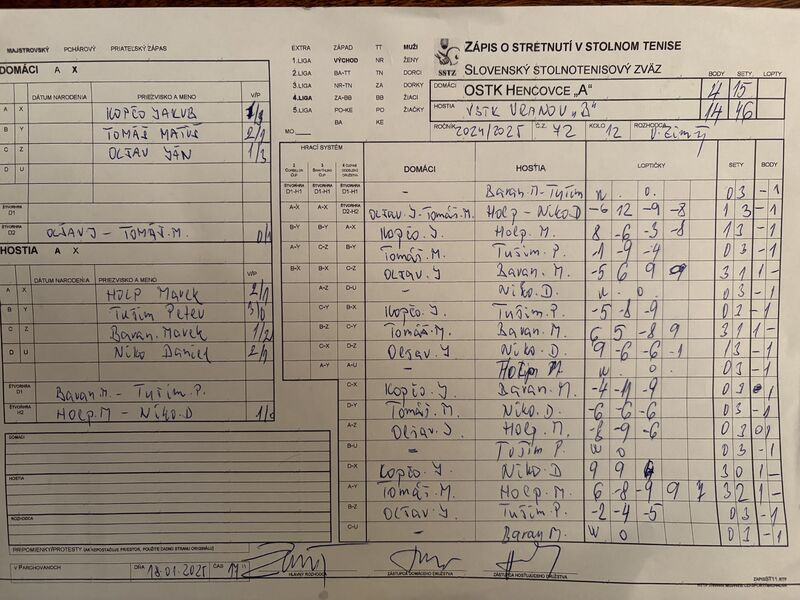 MAJSTROVSKÝ POHÁROVÝ PRIATEĽSKÝ ZÁPAS
EXTRA ZÁPAD TT MUŽI
1.LIGA VÝCHOD NR ŽENY
2.LIGA BA-TT TN DORCI
3.LIGA NR-TN ZA DORKY
4.LIGA ZA-BB BB ŽIACI
5.LIGA PO-KE PO ŽIAČKY
MO BA KE
SSTZ
ZÁPIS O STRETNUTÍ V STOLNOM TENISE
SLOVENSKÝ STOLNOTENISOVÝ ZVÄZ
BODY SETY LOPTY
DOMÁCI OSTK HENCOVCE „A" 4 15
HOSTIA VSTK VRANOV „B" 14 46
ROČNÍK 2024/2025 Č.Z. 72 KOLO 12 ROZHODCA
DOMÁCI A X
DÁTUM NARODENIA PRIEZVISKO A MENO V/P
A X KOPČO JAKUB 1/3
B Y TOMÁŠ MATÚŠ 2/1
C Z OĽŠAV JÁN 1/3
D U
ŠTVORHRA D1
ŠTVORHRA D2 OĽŠAV J - TOMÁŠ M. 0/1
HOSTIA A X
DÁTUM NARODENIA PRIEZVISKO A MENO V/P
A X HOLP Marek 2/1
B Y Tušim Peter 3/0
C Z Baran Marek 1/2
D U Niko Daniel 2/1
ŠTVORHRA D1 Baran M - Tušim P.
ŠTVORHRA H2 HOLP M - Niko D 1/0
DOMÁCI
HOSTIA
ROZHODCA
HRACÍ SYSTÉM
DOMÁCI HOSŤIA LOPTIČKY SETY BODY
ŠTVORHRA D1-H1 ŠTVORHRA D1-H1 ŠTVORHRA D1-H1 - Baran M - Tušim W . O . 0 3 - 1
A-X A-X ŠTVORHRA D2-H2 Oľšav J - Tomáš M. Holp - Niko D -6 12 -9 -8 1 3 - 1
B-Y B-Y A-X Kopčo J Holp M. 8 -6 -3 -8 1 3 - 1
A-Y C-Z B-Y Tomáš M. Tušim P. -1 -9 -4 0 3 - 1
B-X B-X C-Z Oľšav J Baran M. -5 6 9 9 3 1 1 -
A-Z D-U - Niko D. W . O . 0 3 - 1
C-Y B-X Kopčo J. Tušim P. -5 -8 -9 0 3 - 1
B-Z C-Y Tomáš M. Baran M. 6 5 -8 9 3 1 1 -
C-X D-Z Oľšav J Niko D. 9 -6 -6 -1 1 3 - 1
A-Y A-U - Holp M W . O . 0 3 - 1
C-X Kopčo J. Baran M. -4 -11 -9 0 3 1
D-Y Tomáš M. Niko D. -6 -6 -6 0 3 - 1
A-Z Oľšav J. Holp M. -8 -9 -6 0 3 0 1
B-U - Tušim P. W O 0 3 - 1
D-X Kopčo J. Niko D 9 9 3 0 1 -
A-Y Tomáš M. Holp M. 6 -8 -9 9 7 3 2 1 -
B-Z Oľšav J. Tušim P. -2 -4 -5 0 3 - 1
C-U - Baran M. W O 0 3 - 1
PRIPOMIENKY/PROTESTY (AK NEPOSTAČUJE PRIESTOR, POUŽITE ZADNÚ STRANU ORIGINÁLU)
V PARCHOVANOCH DŇA 18.01.2025 ČAS 17
HLAVNÝ ROZHODCA ZÁSTUPCA DOMÁCEHO DRUŽSTVA ZÁSTUPCA HOSŤUJÚCEHO DRUŽSTVA
ZAPISST11.RTF